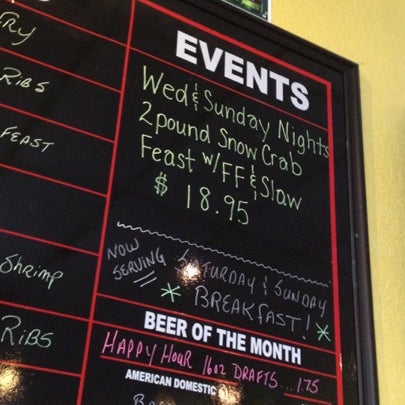 RY
RIBS
FEAST
Shrimp
RIBS
EVENTS
Wed & Sunday Nights
2 pound Snow Crab
Feast w/ FF & Slaw
$ 18.95
NOW SERVING
SATURDAY & SUNDAY
* BREAKFAST! *
BEER OF THE MONTH
HAPPY HOUR 16oz DRAFTS...1.75
AMERICAN DOMESTIC